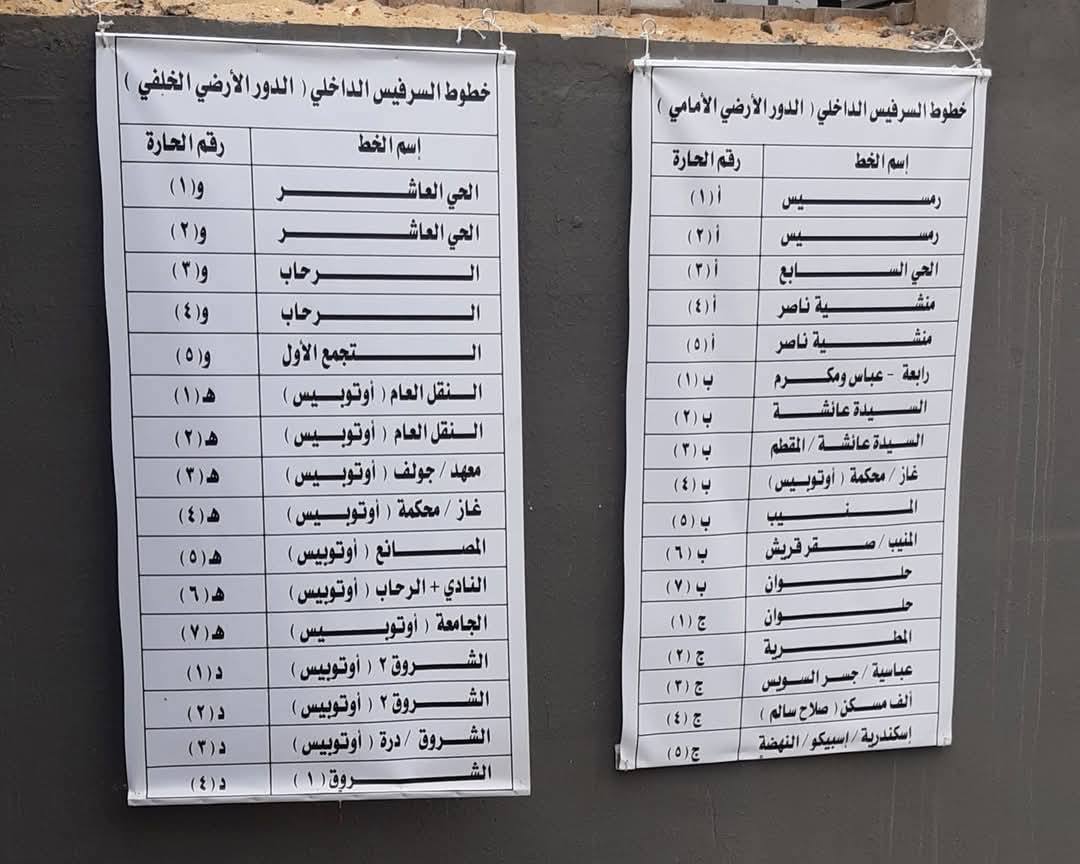 خطوط السرفيس الداخلي ( الدور الأرضي الأمامي )
إسم الخط رقم الحارة
رمسيس أ (١)
رمسيس أ (٢)
الحي السابع أ (٣)
منشية ناصر أ (٤)
منشية ناصر أ (٥)
رابعة - عباس ومكرم ب (١)
السيدة عائشة ب (٢)
السيدة عائشة / المقطم ب (٣)
غاز / محكمة ( أوتوبيس ) ب (٤)
المنيب ب (٥)
المنيب / صقر قريش ب (٦)
حلوان ب (٧)
حلوان ج (١)
المطرية ج (٢)
عباسية / جسر السويس ج (٣)
ألف مسكن ( صلاح سالم ) ج (٤)
إسكندرية / إسبيكو / النهضة ج (٥)
خطوط السرفيس الداخلي ( الدور الأرضي الخلفي )
إسم الخط رقم الحارة
الحي العاشر و (١)
الحي العاشر و (٢)
الرحاب و (٣)
الرحاب و (٤)
التجمع الأول و (٥)
النقل العام ( أوتوبيس ) هـ (١)
النقل العام ( أوتوبيس ) هـ (٢)
معهد / جولف ( أوتوبيس ) هـ (٣)
غاز / محكمة ( أوتوبيس ) هـ (٤)
المصانع ( أوتوبيس ) هـ (٥)
النادي + الرحاب ( أوتوبيس ) هـ (٦)
الجامعة ( أوتوبيس ) هـ (٧)
الشروق ٢ ( أوتوبيس ) د (١)
الشروق ٢ ( أوتوبيس ) د (٢)
الشروق / درة ( أوتوبيس ) د (٣)
الشروق (١) د (٤)